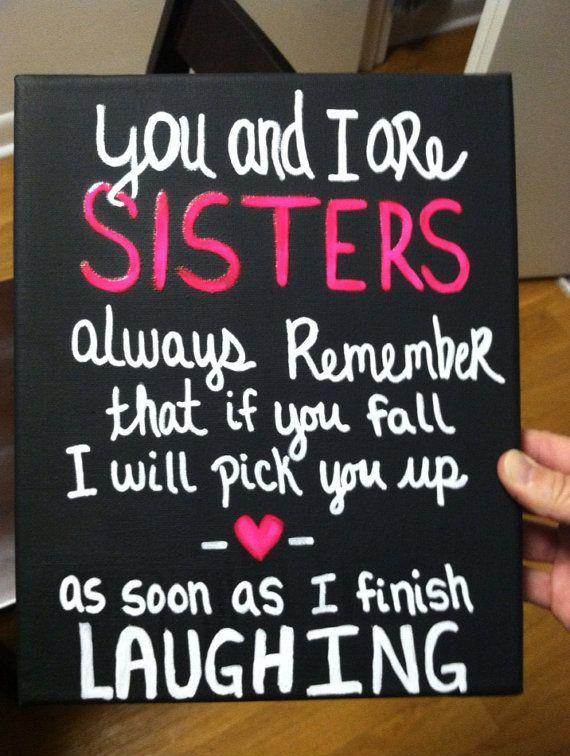 you and I aRe
SISTERS
always RemembeR
that if you fall
I will pick you up
as soon as I finish
LAUGHING